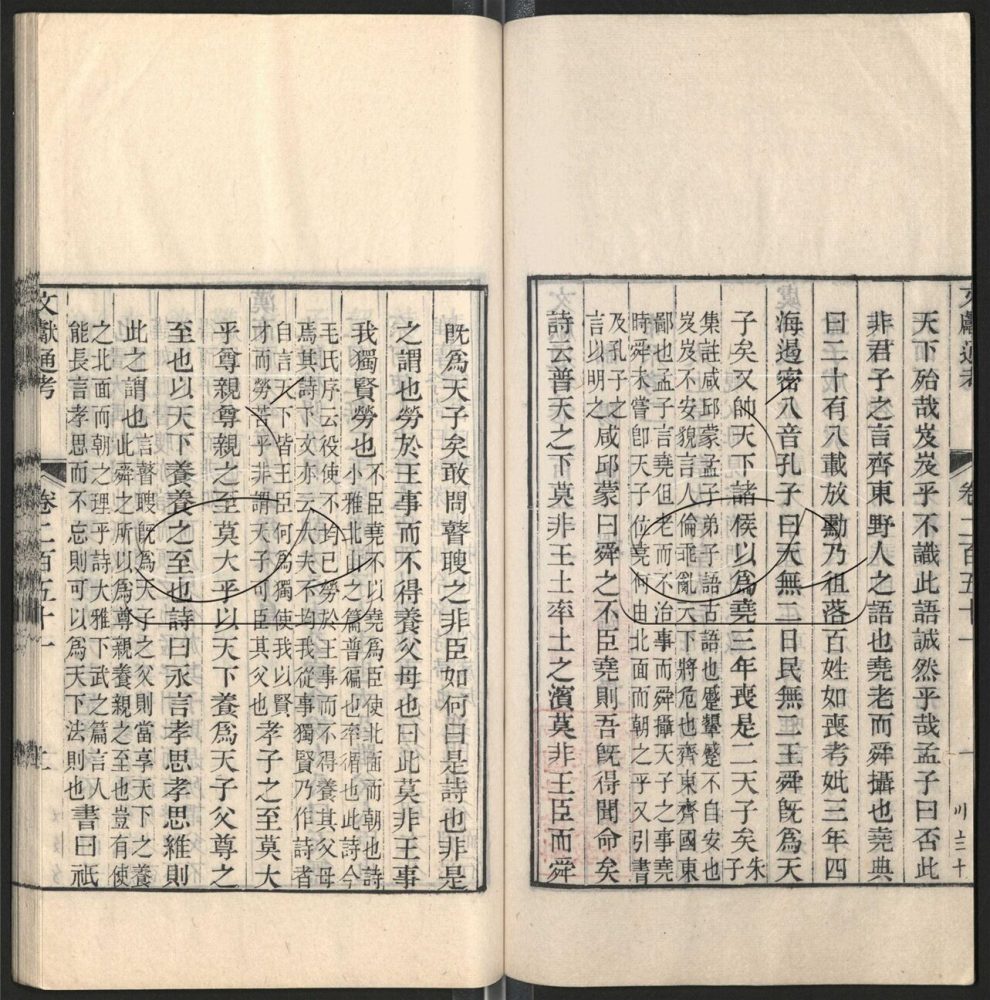 文獻通考 卷二百五十一 一
天下殆哉岌岌乎不識此語誠然乎哉孟子曰否此
非君子之言齊東野人之語也堯老而舜攝也堯典
曰二十有八載放勳乃祖落百姓如喪考妣三年四
海遏密八音孔子曰天無二日民無二王舜旣爲天
子矣又帥天下諸侯以爲堯三年喪是二天子矣朱子
集註咸邱蒙孟子弟子語古語也蹙顰蹙不自安也
岌岌不安貌言人倫乖亂天下將危也齊東齊國東
鄙也孟子言堯但老而不治事而舜攝天子之事堯
時舜未嘗卽天子位堯何由北面而朝之乎又引書
及孔子之
言以明之咸邱蒙曰舜之不臣堯則吾旣得聞命矣
詩云普天之下莫非王土率土之濱莫非王臣而舜
旣爲天子矣敢問瞽瞍之非臣如何曰是詩也非是
之謂也勞於王事而不得養父母也曰此莫非王事
我獨賢勞也不臣堯不以堯爲臣使北面而朝也詩
小雅北山之篇普徧也率循也此詩今
毛氏序云役使不均已勞於王事而不得養其父母
焉其詩下文亦云大夫不均我從事獨賢乃作詩者
自言天下皆王臣何爲獨使我以賢
才而勞苦乎非謂天子可臣其父也孝子之至莫大
乎尊親尊親之至莫大乎以天下養爲天子父尊之
至也以天下養養之至也詩曰永言孝思孝思維則
此之謂也言瞽瞍旣爲天子之父則當享天下之養
此舜之所以爲尊親養親之至也豈有使
之北面而朝之理乎詩大雅下武之篇言人
能長言孝思而不忘則可以爲天下法則也書曰祇
文獻通考 卷二百五十一 二